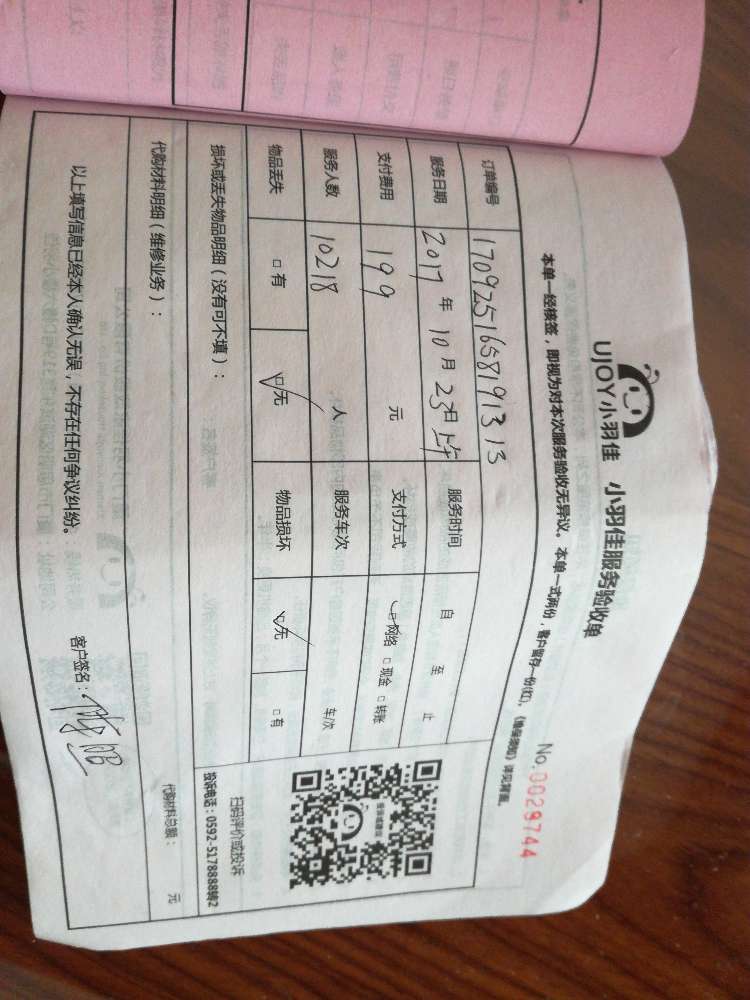 UJOY小羽佳 小羽佳服务验收单
No.0029744
本单一经核签，即视为对本次服务验收无异议。本单一式两份，客户留存一份(红)。《维保须知》详见背面。
订单编号 1709251658191313
服务日期 2017 年 10 月 23日 上午 服务时间 自 至 止
支付费用 199 元 支付方式 ☑网络 □现金 □转账
服务人数 10218 人 服务车次 车/次
物品丢失 □有 ☑无 物品损坏 ☑无 □有
扫码评价或投诉
损坏或丢失物品明细（没有可不填）： 投诉电话：0592-5178888转2
代购材料明细（维修业务）： 代购材料总额： 元
以上填写信息已经本人确认无误，不存在任何争议纠纷。 客户签名：